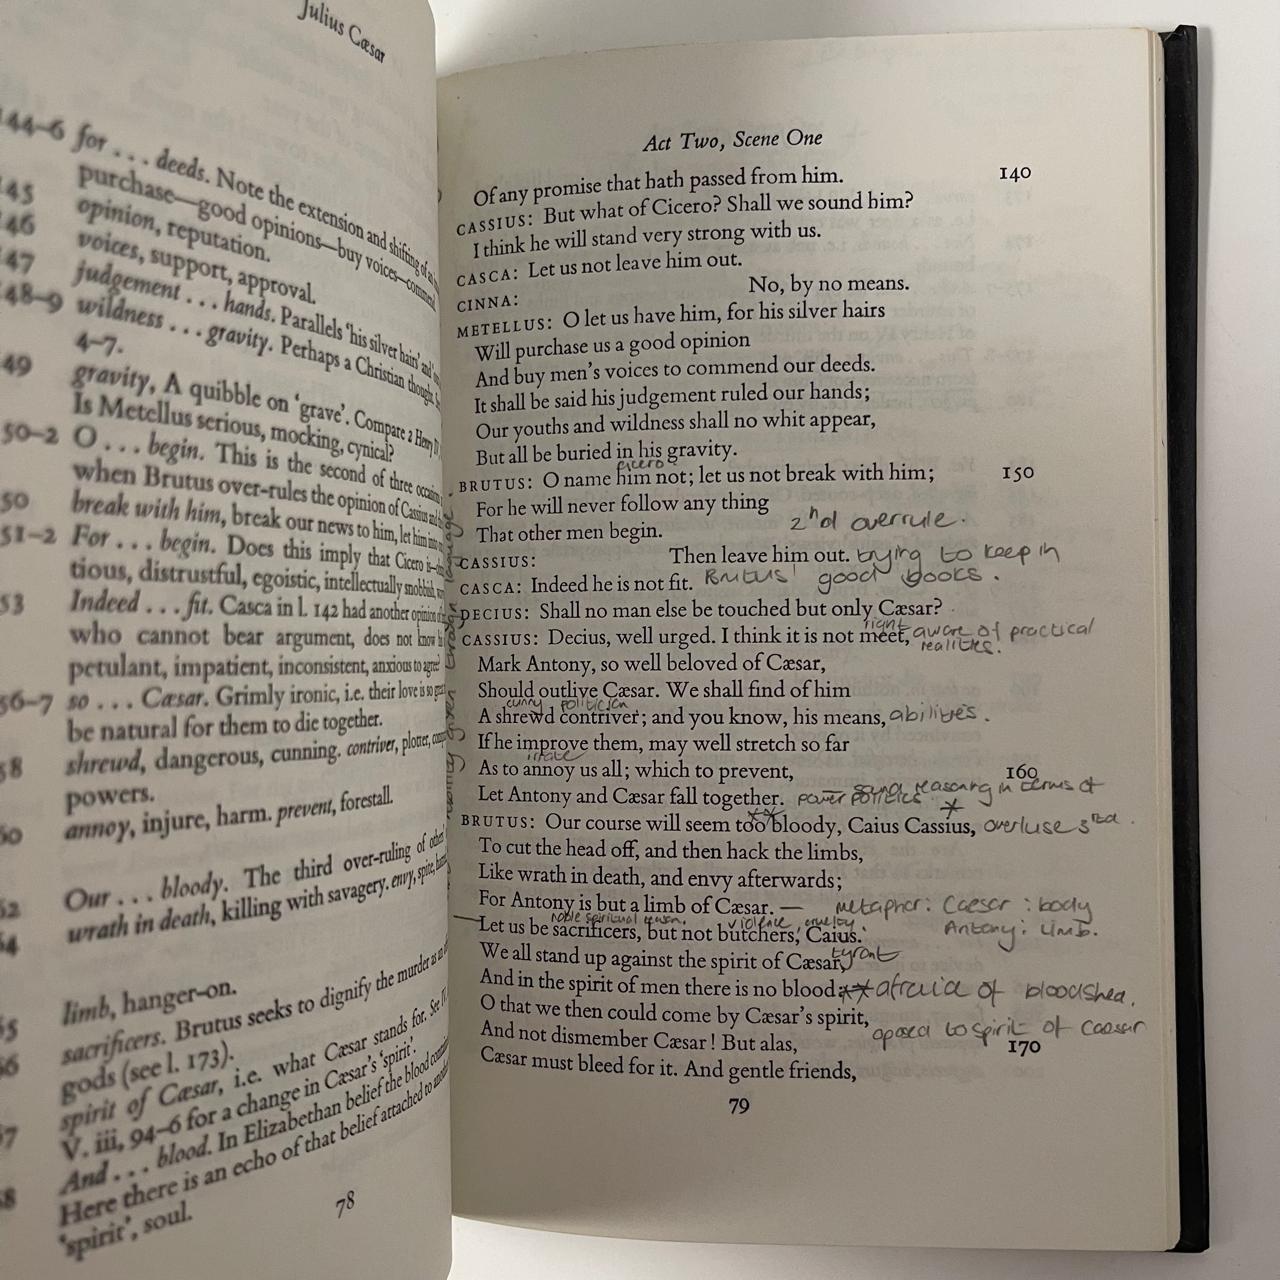 Julius Cæsar
144–6 for . . . deeds. Note the extension and shifting of
purchase—good opinions—buy voices—
145 opinion, reputation.
146 voices, support, approval.
147 judgement . . . hands. Parallels 'his silver hairs' and
148–9 wildness . . . gravity. Perhaps a Christian thought.
4–7.
149 gravity, A quibble on 'grave'. Compare 2 Henry IV,
Is Metellus serious, mocking, cynical?
50–2 O . . . begin. This is the second of three occasions
when Brutus over-rules the opinion of Cassius and
50 break with him, break our news to him, let him into
51–2 For . . . begin. Does this imply that Cicero is
tious, distrustful, egoistic, intellectually snobbish,
53 Indeed . . . fit. Casca in l. 142 had another opinion of
who cannot bear argument, does not know
petulant, impatient, inconsistent, anxious to agree?
56–7 so . . . Cæsar. Grimly ironic, i.e. their love is so great
be natural for them to die together.
58 shrewd, dangerous, cunning. contriver, plotter,
powers.
60 annoy, injure, harm. prevent, forestall.
62 Our . . . bloody. The third over-ruling of other
64 wrath in death, killing with savagery. envy, spite,
65 limb, hanger-on.
66 sacrificers. Brutus seeks to dignify the murder as
gods (see l. 173).
67 spirit of Cæsar, i.e. what Cæsar stands for. See
V. iii, 94–6 for a change in Cæsar's 'spirit'.
68 And . . . blood. In Elizabethan belief the blood
Here there is an echo of that belief attached to
'spirit', soul.
78
Act Two, Scene One
Of any promise that hath passed from him. 140
CASSIUS: But what of Cicero? Shall we sound him?
I think he will stand very strong with us.
CASCA: Let us not leave him out.
CINNA: No, by no means.
METELLUS: O let us have him, for his silver hairs
Will purchase us a good opinion
And buy men's voices to commend our deeds.
It shall be said his judgement ruled our hands;
Our youths and wildness shall no whit appear,
But all be buried in his gravity.
cicero
BRUTUS: O name him not; let us not break with him; 150
For he will never follow any thing
That other men begin. 2nd overrule.
CASSIUS: Then leave him out. trying to keep in
CASCA: Indeed he is not fit. Brutus' good books.
DECIUS: Shall no man else be touched but only Cæsar?
right
CASSIUS: Decius, well urged. I think it is not meet, aware of practical
realities.
Mark Antony, so well beloved of Cæsar,
Should outlive Cæsar. We shall find of him
cunny politician
A shrewd contriver; and you know, his means, abilities.
If he improve them, may well stretch so far
irrate
As to annoy us all; which to prevent, 160
Let Antony and Cæsar fall together. power politics reasoning in terms of
BRUTUS: Our course will seem too bloody, Caius Cassius, overluse 3rd.
To cut the head off, and then hack the limbs,
Like wrath in death, and envy afterwards;
For Antony is but a limb of Cæsar. — metaphor: Caesar : body
noble spiritual violence, cruelty. Antony: limb.
Let us be sacrificers, but not butchers, Caius.
We all stand up against the spirit of Cæsar, tyrant
And in the spirit of men there is no blood; ** afraid of bloodshed.
O that we then could come by Cæsar's spirit, oposed to spirit of Caesar
And not dismember Cæsar! But alas, 170
Cæsar must bleed for it. And gentle friends,
79